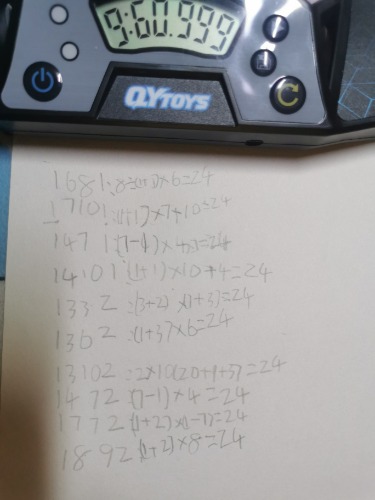 9:60.999
QYTOYS
1681:8÷(1+1)×6=24
17101:(1+1)×7+10=24
1471:(7-1)×4×1=24
14101:(1+1)×10+4=24
1332:(3+2)×(1+3)=24
1362:(1+3)×6=24
13102:2×10(20+1+3)=24
1472:(7-1)×4=24
1772:(1+2)×(1-7)=24
1892:(1+2)×8=24